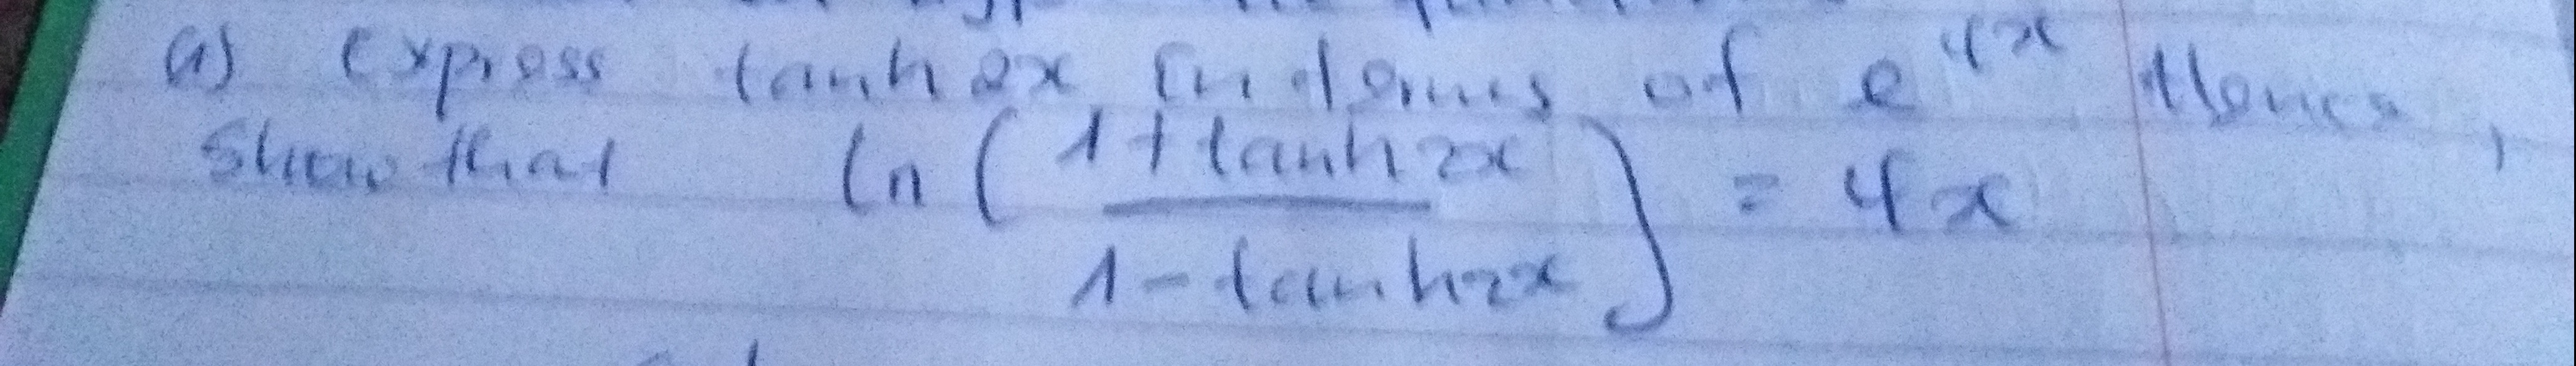 a) express tanh 2x in terms of e^{4x} Hence,
Show that ln ( \frac{1 + tanh 2x}{1 - tanh 2x} ) = 4x